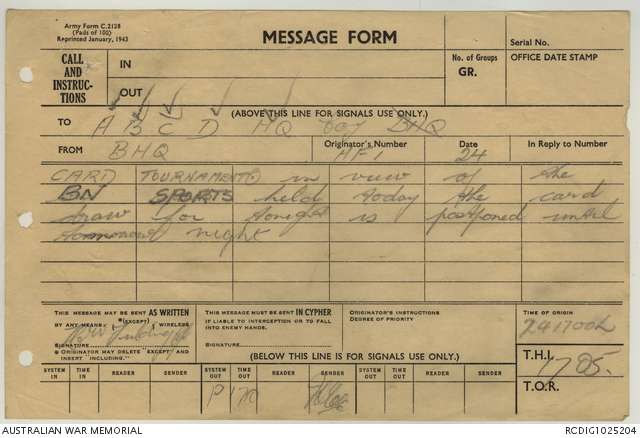 Army Form C.2128
(Pads of 100)
Reprinted January, 1943
MESSAGE FORM
Serial No.
CALL AND INSTRUC-TIONS
IN
OUT
No. of Groups
GR.
OFFICE DATE STAMP
(ABOVE THIS LINE FOR SIGNALS USE ONLY.)
TO A B C D HQ coy BHQ
FROM BHQ
Originator's Number
AF1
Date
24
In Reply to Number
CARD TOURNAMENT in view of the
BN SPORTS held today the card
draw for tonight is postponed until
tomorrow night
THIS MESSAGE MAY BE SENT AS WRITTEN
BY ANY MEANS (EXCEPT) WIRELESS
SIGNATURE
ORIGINATOR MAY DELETE "EXCEPT" AND
INSERT "INCLUDING."
THIS MESSAGE MUST BE SENT IN CYPHER
IF LIABLE TO INTERCEPTION OR TO FALL
INTO ENEMY HANDS.
SIGNATURE
ORIGINATOR'S INSTRUCTIONS
DEGREE OF PRIORITY
TIME OF ORIGIN
241700L
(BELOW THIS LINE IS FOR SIGNALS USE ONLY.)
T.H.I. 1705.
T.O.R.
SYSTEM IN
TIME IN
READER
SENDER
SYSTEM OUT
TIME OUT
READER
SENDER
SYSTEM OUT
TIME OUT
READER
SENDER
AUSTRALIAN WAR MEMORIAL
RCDIG1025204